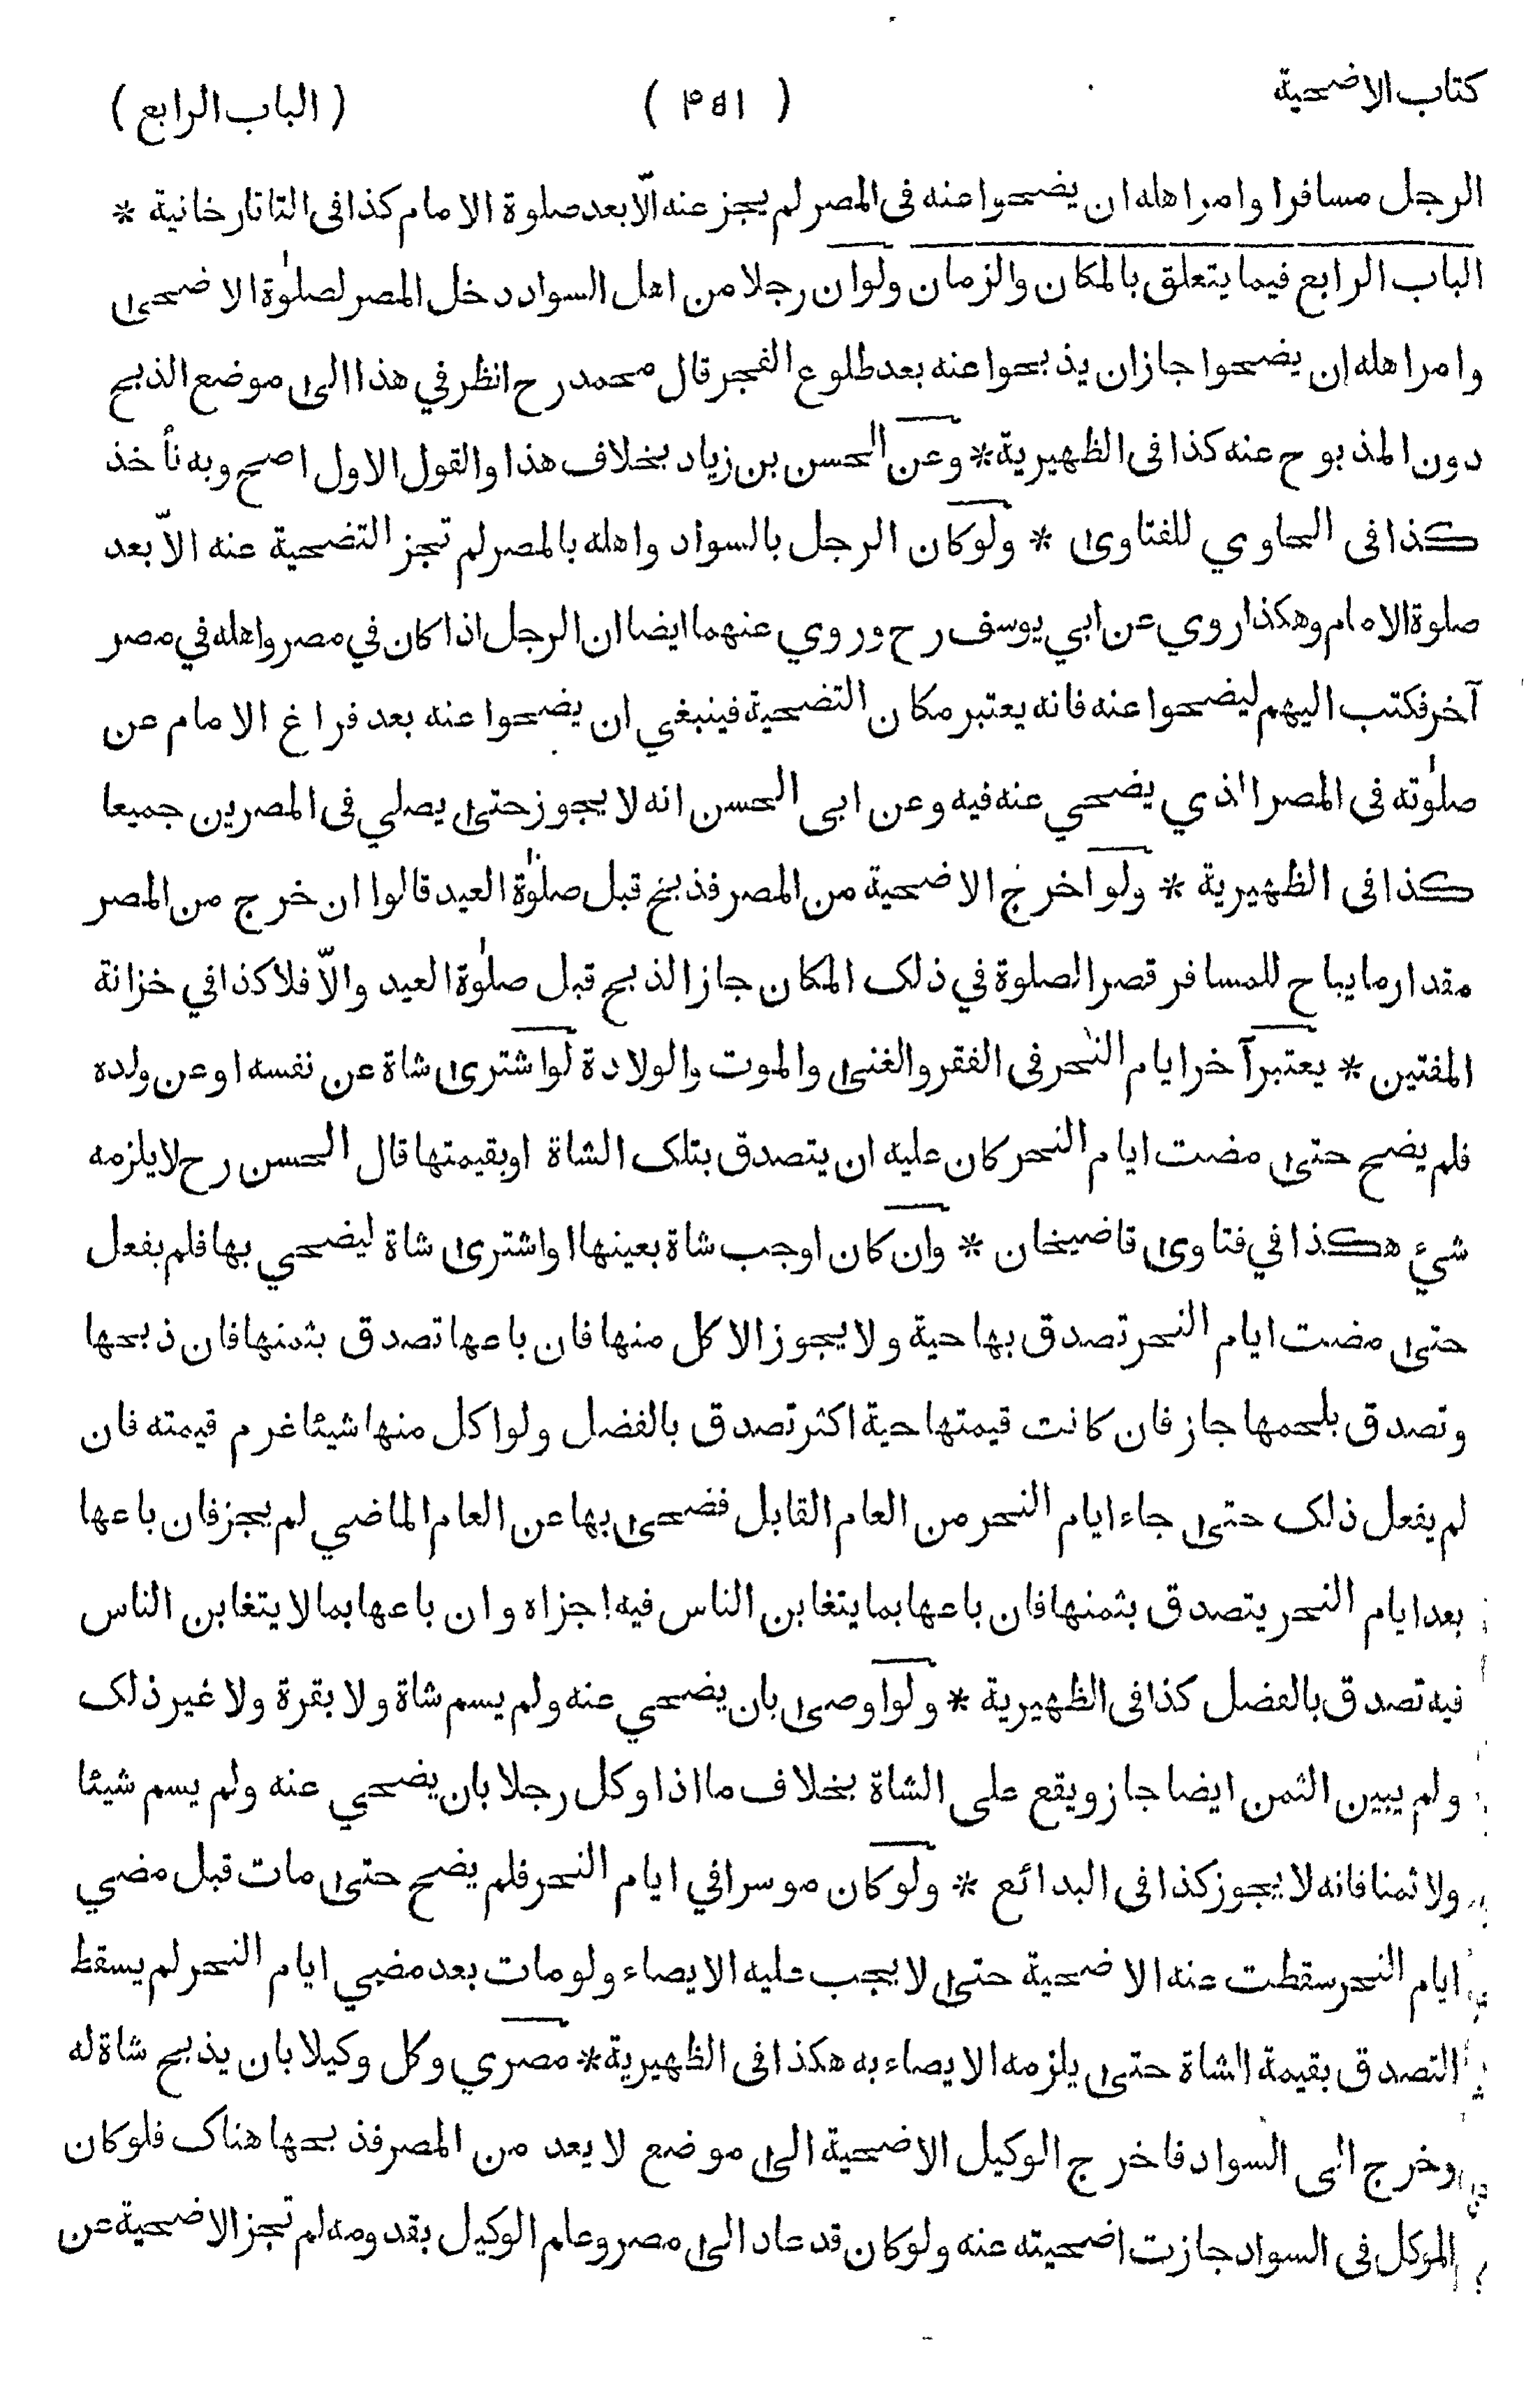 كتاب الاضحية ( ۴۵۱ ) ( الباب الرابع )
الرجل مسافرا وامر اهله ان يضحوا عنه فى المصر لم يجز عنه الّا بعد صلوة الامام كذا فى التاتارخانية *
الباب الرابع فيما يتعلق بالمكان والزمان ولو ان رجلا من اهل السواد دخل المصر لصلوٰة الاضحىٰ
وامر اهله ان يضحوا جاز ان يذبحوا عنه بعد طلوع الفجر قال محمد رح انظر في هذا الىٰ موضع الذبح
دون المذبوح عنه كذا فى الظهيرية * وعن الحسن بن زياد بخلاف هذا والقول الاول اصح وبه نأخذ
كذا فى الحاوي للفتاوىٰ * ولو كان الرجل بالسواد واهله بالمصر لم تجز التضحية عنه الّا بعد
صلوة الامام وهكذا روي عن ابي يوسف رح وروي عنهما ايضا ان الرجل اذا كان في مصر واهله في مصر
آخر فكتب اليهم ليضحوا عنه فانه يعتبر مكان التضحية فينبغي ان يضحوا عنه بعد فراغ الامام عن
صلوٰته فى المصر الذي يضحي عنه فيه وعن ابى الحسن انه لا يجوز حتىٰ يصلي فى المصرين جميعا
كذا فى الظهيرية * ولو اخرج الاضحية من المصر فذبح قبل صلوٰة العيد قالوا ان خرج من المصر
مقدار ما يباح للمسافر قصر الصلوة في ذلک المكان جاز الذبح قبل صلوٰة العيد والّا فلا كذا في خزانة
المفتين * يعتبر آخر ايام النحر فى الفقر والغنىٰ والموت والولادة لو اشترىٰ شاة عن نفسه او عن ولده
فلم يضح حتىٰ مضت ايام النحر كان عليه ان يتصدق بتلک الشاة اوبقيمتها قال الحسن رح لا يلزمه
شيء هكذا في فتاوىٰ قاضيخان * وان كان اوجب شاة بعينها او اشترىٰ شاة ليضحي بها فلم يفعل
حتىٰ مضت ايام النحر تصدق بها حية ولا يجوز الاكل منها فان باعها تصدق بثمنها فان ذبحها
وتصدق بلحمها جاز فان كانت قيمتها حية اكثر تصدق بالفضل ولو اكل منها شيئا غرم قيمته فان
لم يفعل ذلک حتىٰ جاء ايام النحر من العام القابل فضحىٰ بها عن العام الماضي لم يجز فان باعها
بعد ايام النحر يتصدق بثمنها فان باعها بما يتغابن الناس فيه اجزاه وان باعها بما لا يتغابن الناس
فيه تصدق بالفضل كذا فى الظهيرية * ولو اوصىٰ بان يضحي عنه ولم يسم شاة ولا بقرة ولا غير ذلک
ولم يبين الثمن ايضا جاز ويقع على الشاة بخلاف ما اذا وكل رجلا بان يضحي عنه ولم يسم شيئا
ولا ثمنا فانه لا يجوز كذا فى البدائع * ولو كان موسرا في ايام النحر فلم يضح حتىٰ مات قبل مضي
ايام النحر سقطت عنه الاضحية حتىٰ لا يجب عليه الايصاء ولو مات بعد مضي ايام النحر لم يسقط
التصدق بقيمة الشاة حتىٰ يلزمه الايصاء به هكذا فى الظهيرية * مصري وكل وكيلا بان يذبح شاة له
وخرج الى السواد فاخرج الوكيل الاضحية الىٰ موضع لا يعد من المصر فذبحها هناک فلو كان
الموكل فى السواد جازت اضحيته عنه ولو كان قد عاد الىٰ مصر وعلم الوكيل بقدومه لم تجز الاضحية عن